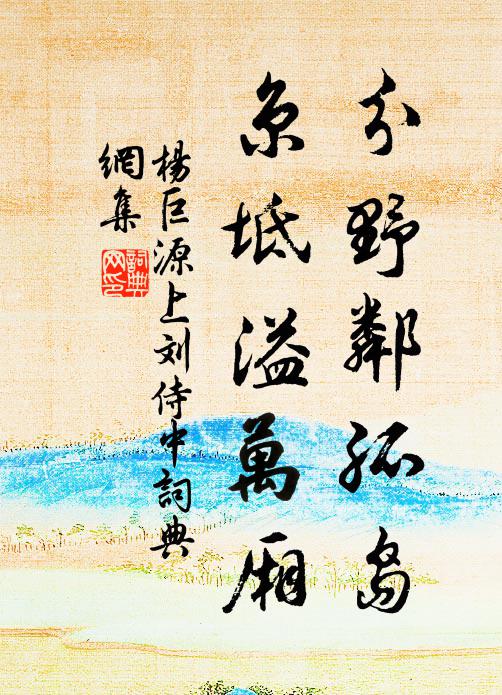 分野鄰孤島
京坻溢萬厢
楊巨源上刘侍中詞典
網集
詞典
网印